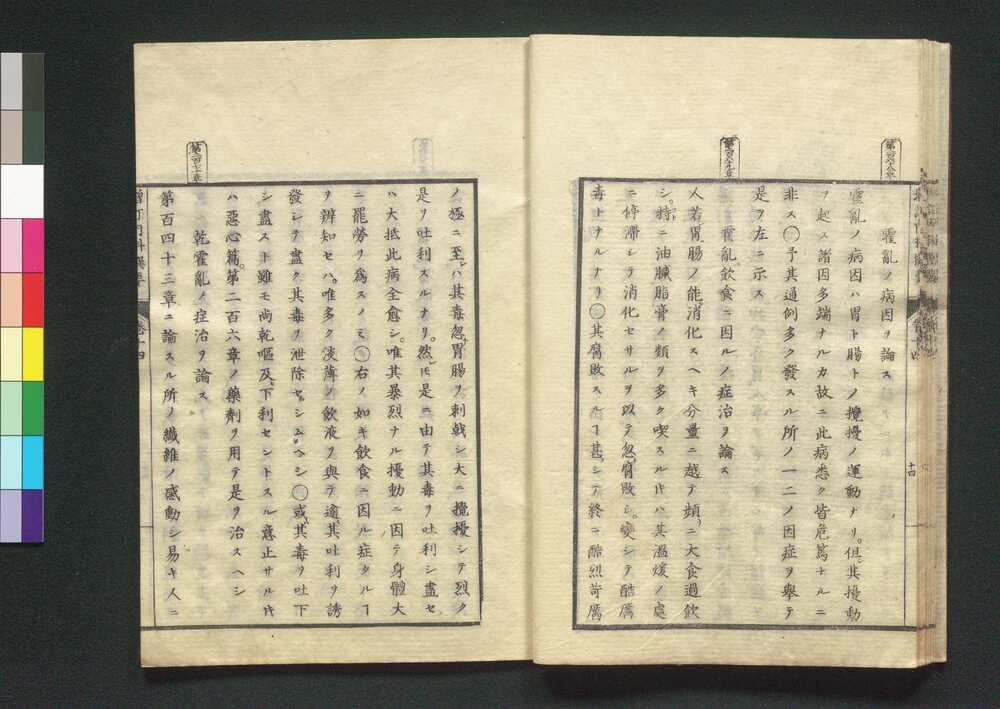 霍亂ノ病因ヲ論ス
霍亂ノ病因ハ胃ト腸トノ攪擾ノ運動ナリ。但其擾動
ヲ起ス諸因多端ナルカ故ニ此病悉ク皆危篤ナルニ
非ス〇予其通例多ク發スル所ノ一二ノ因症ヲ擧テ
是ヲ左ニ示ス
霍亂飲食ニ因ルノ症治ヲ論ス
人若胃腸ノ能消化スヘキ分量ニ越テ頻ニ大食過飲
シ。特ニ油膩脂膏ノ類ヲ多ク喫スル片ハ其溫煖ノ處
ニ停滯シテ消化セサルヲ以テ忽腐敗シ。變シテ酷厲
毒トナルナリ〇其腐敗スルヿ甚シテ終ニ酷烈苛厲
ノ極ニ至レハ其毒忽胃腸ヲ刺戟シ大ニ攪擾シテ烈ノ
是ヲ吐利スルナリ。然レ𪜈是ニ由テ其毒ヲ吐利シ盡セ
ハ大抵此病全愈シ。唯其暴烈ナル擾動ニ因テ身體大
ニ罷勞ヲ為スノミ〇右ノ如キ飲食ニ因ル症タルヿ
ヲ辨知セハ。唯多ク淡薄ノ飲液ヲ與テ適其吐利ヲ誘
發シテ盡ク其毒ヲ泄除セシムヘシ〇或其毒ヲ吐下
シ盡スト雖モ尚乾嘔及下利セントスル意止サル片
ハ惡心篇。第二百六章ノ藥劑ヲ用テ是ヲ治スヘシ
乾霍亂ノ症治ヲ論ス
第百四十三章ニ論スル所ノ纖維ノ感動シ易キ人ニ
十四